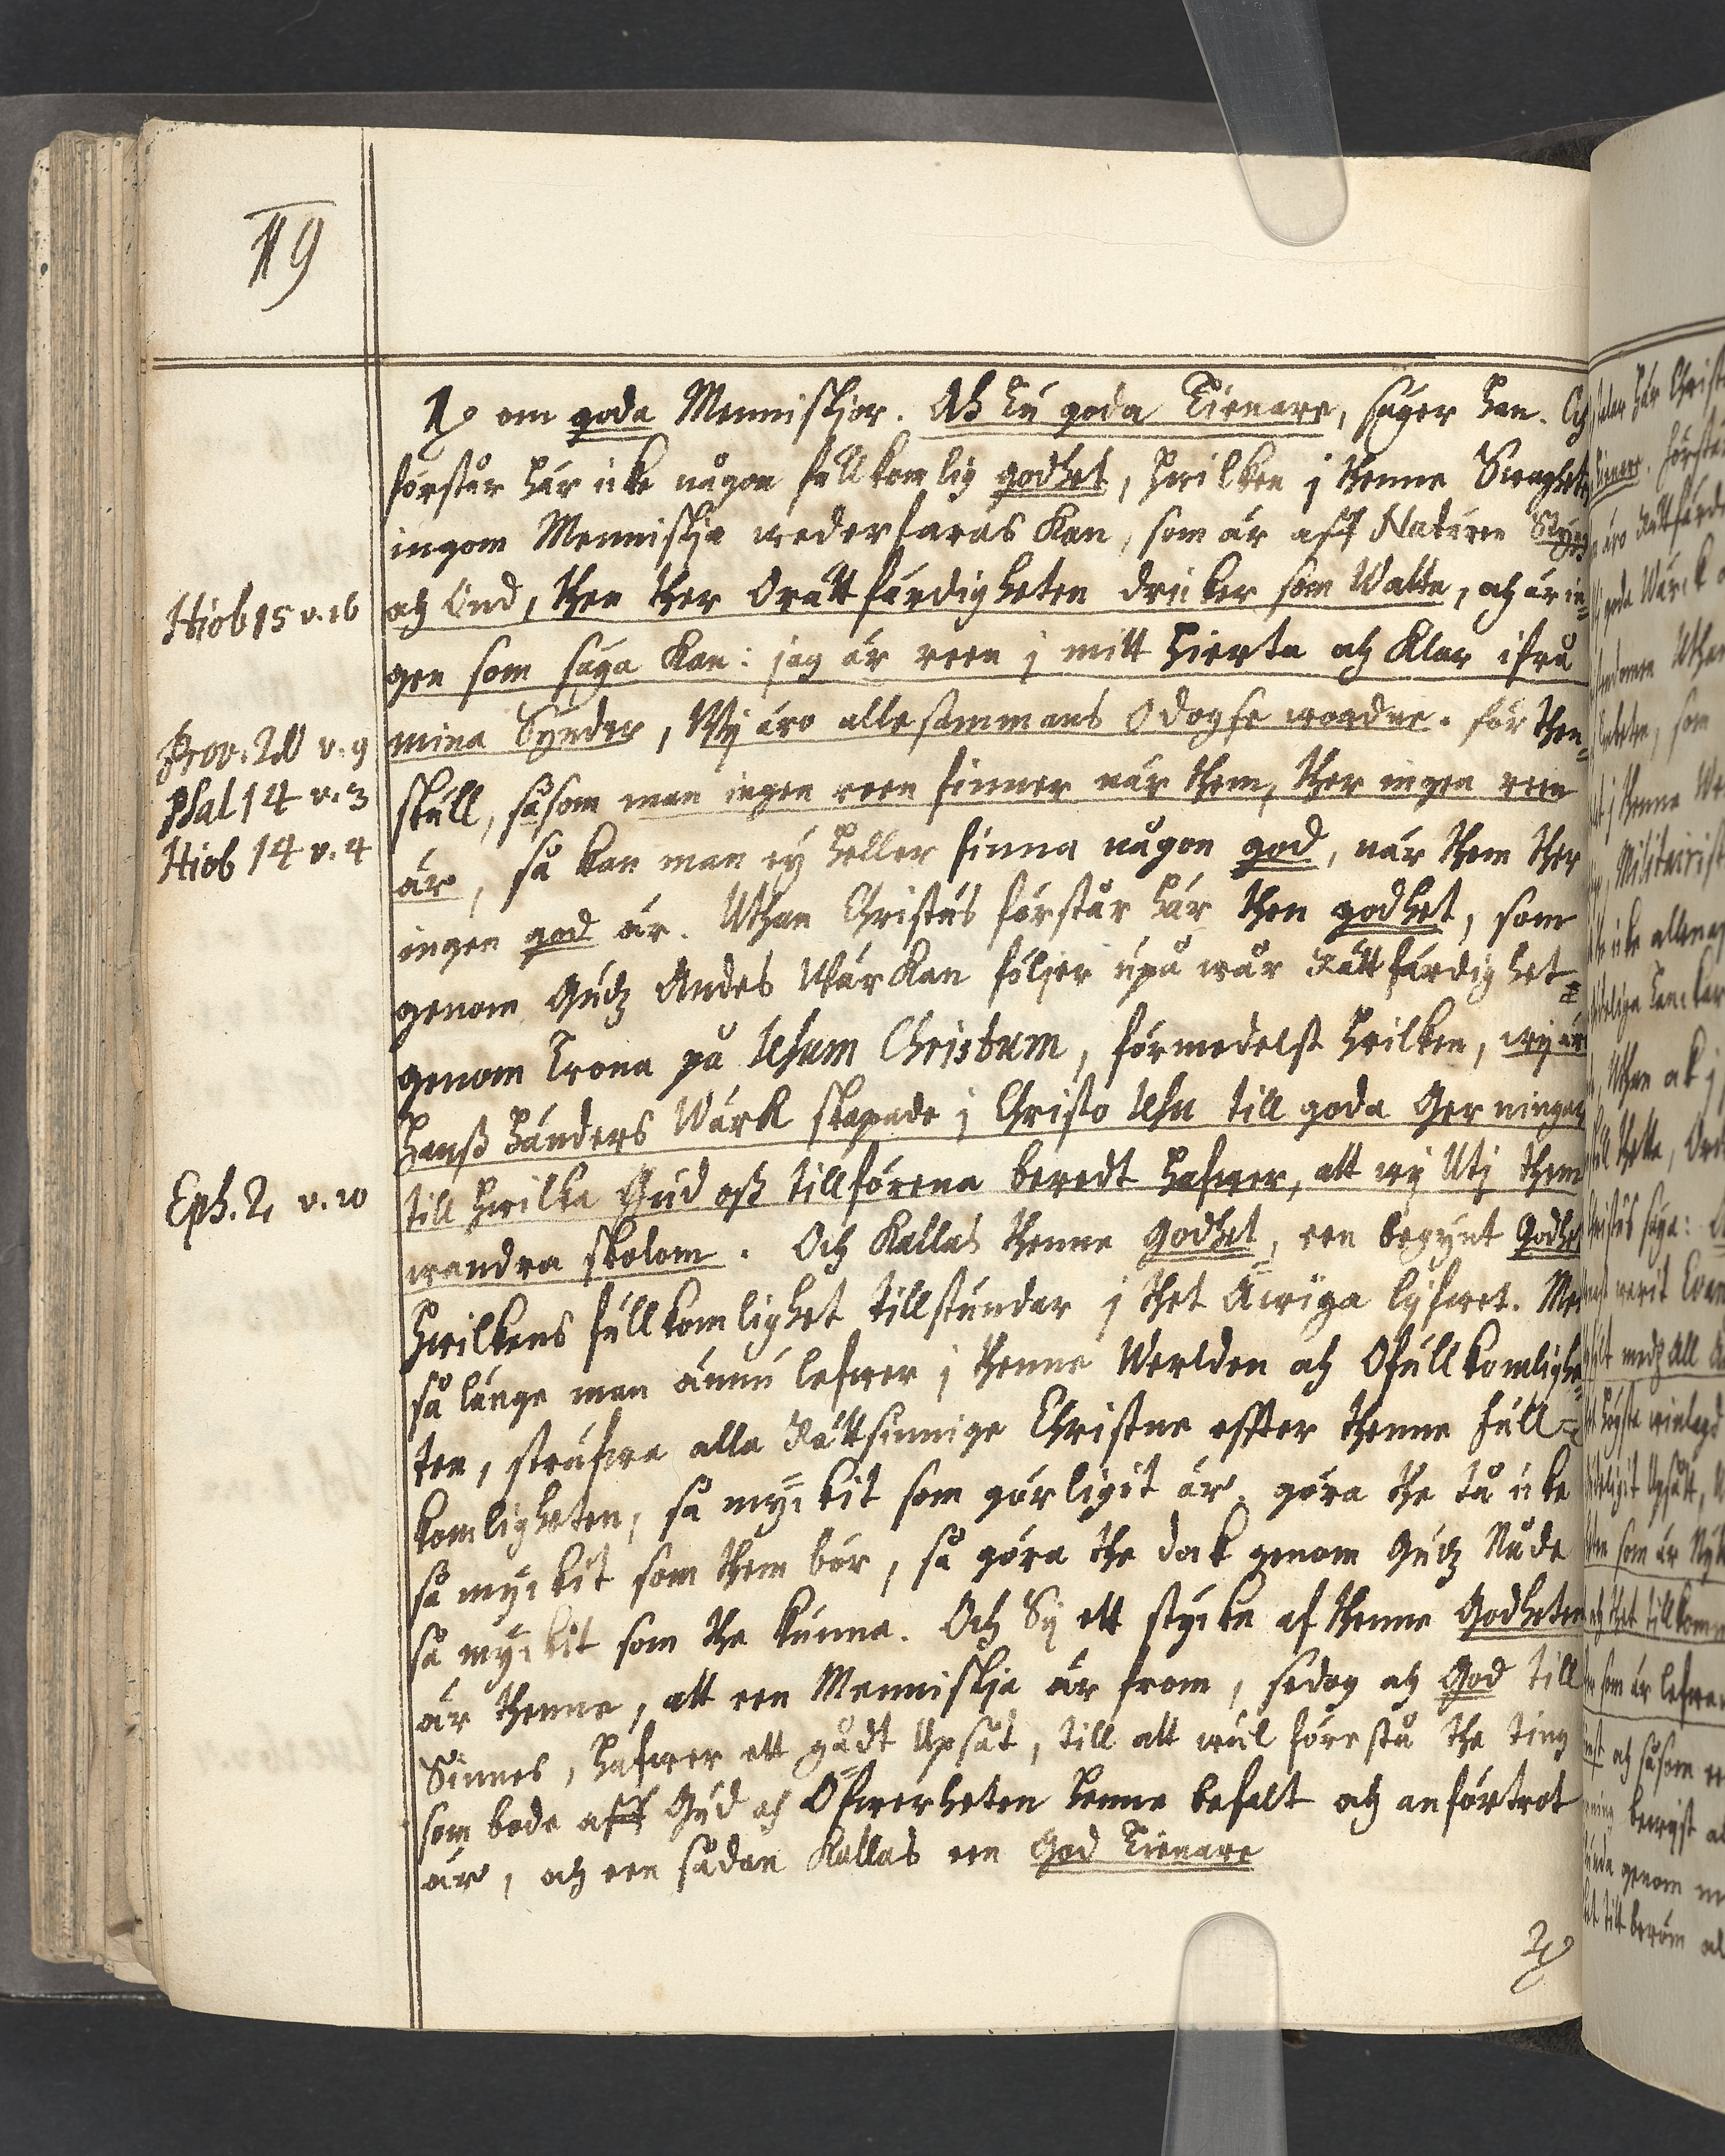 119
1o om goda Menniskjor. Ah tu goda Tienare, säger han. Och
förstår här icke någon fullkomlig godhet, hwilken j thenne Swaghet
ingom Menniskja wederfaras kan, som är aff Naturen Stygg
och Ond, then ther Orättfärdigheten dricker som Watn, och är in-
Hiob 15 v. 16
gen som säga kan: jag är reen j mitt hierta och klar ifrå
mina Synder, Wij äro allesammans odogse wordne. för then-
Prov. 20 v. 9
Psal 14 v. 3
skull, såsom man ingen reen finner när them, ther ingen reen
Hiob 14 v. 4
är, så kan man ey heller finna någon god, när them ther
ingen god är. Uthan Christus förstår här then godhet, som
genom Gudz Andes Wärkan följer upå wår Rättfärdighet
genom Trona på Jesum Christum, förmedelst hwilken, wij äre
Hanß händers Wärk skapade j Christo Jesu till goda Gerningar
till hwilka Gud oß tillförena beredt hafwer, att wij Utj them
Eph. 2 v. 10
wandra skolom. Och kallas thenne Godhet, een begynt Godhet
hwilkens fullkomlighet tillstundar j thet Äwiga lifwet. Men
så länge man ännu lefwer j thenne Werlden och Ofullkomlighe-
ten, sträfwa alla Rättsinnige Christne effter thenne full-
komligheten, så myckit som görligit är. göra the tå icke
så myckit som them bör, så göra the dock genom Gudz Nåde
så myckit som the kunna. Och Sij ett stycke af thenne Godheten
är thenne, att een Menniskja är from, sedog och God till
Sinnes, hafwer ett gådt Upsåt, till att wäl förestå the ting
som bode aff Gud och Öfwerheten henne befalt och anförtrot
är, och een sådan kallas een God Tienare
2o